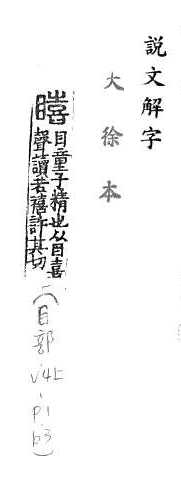 說文解字
大徐本
瞦目童子精也从目喜
聲讀若禧許其切
(目部
p1